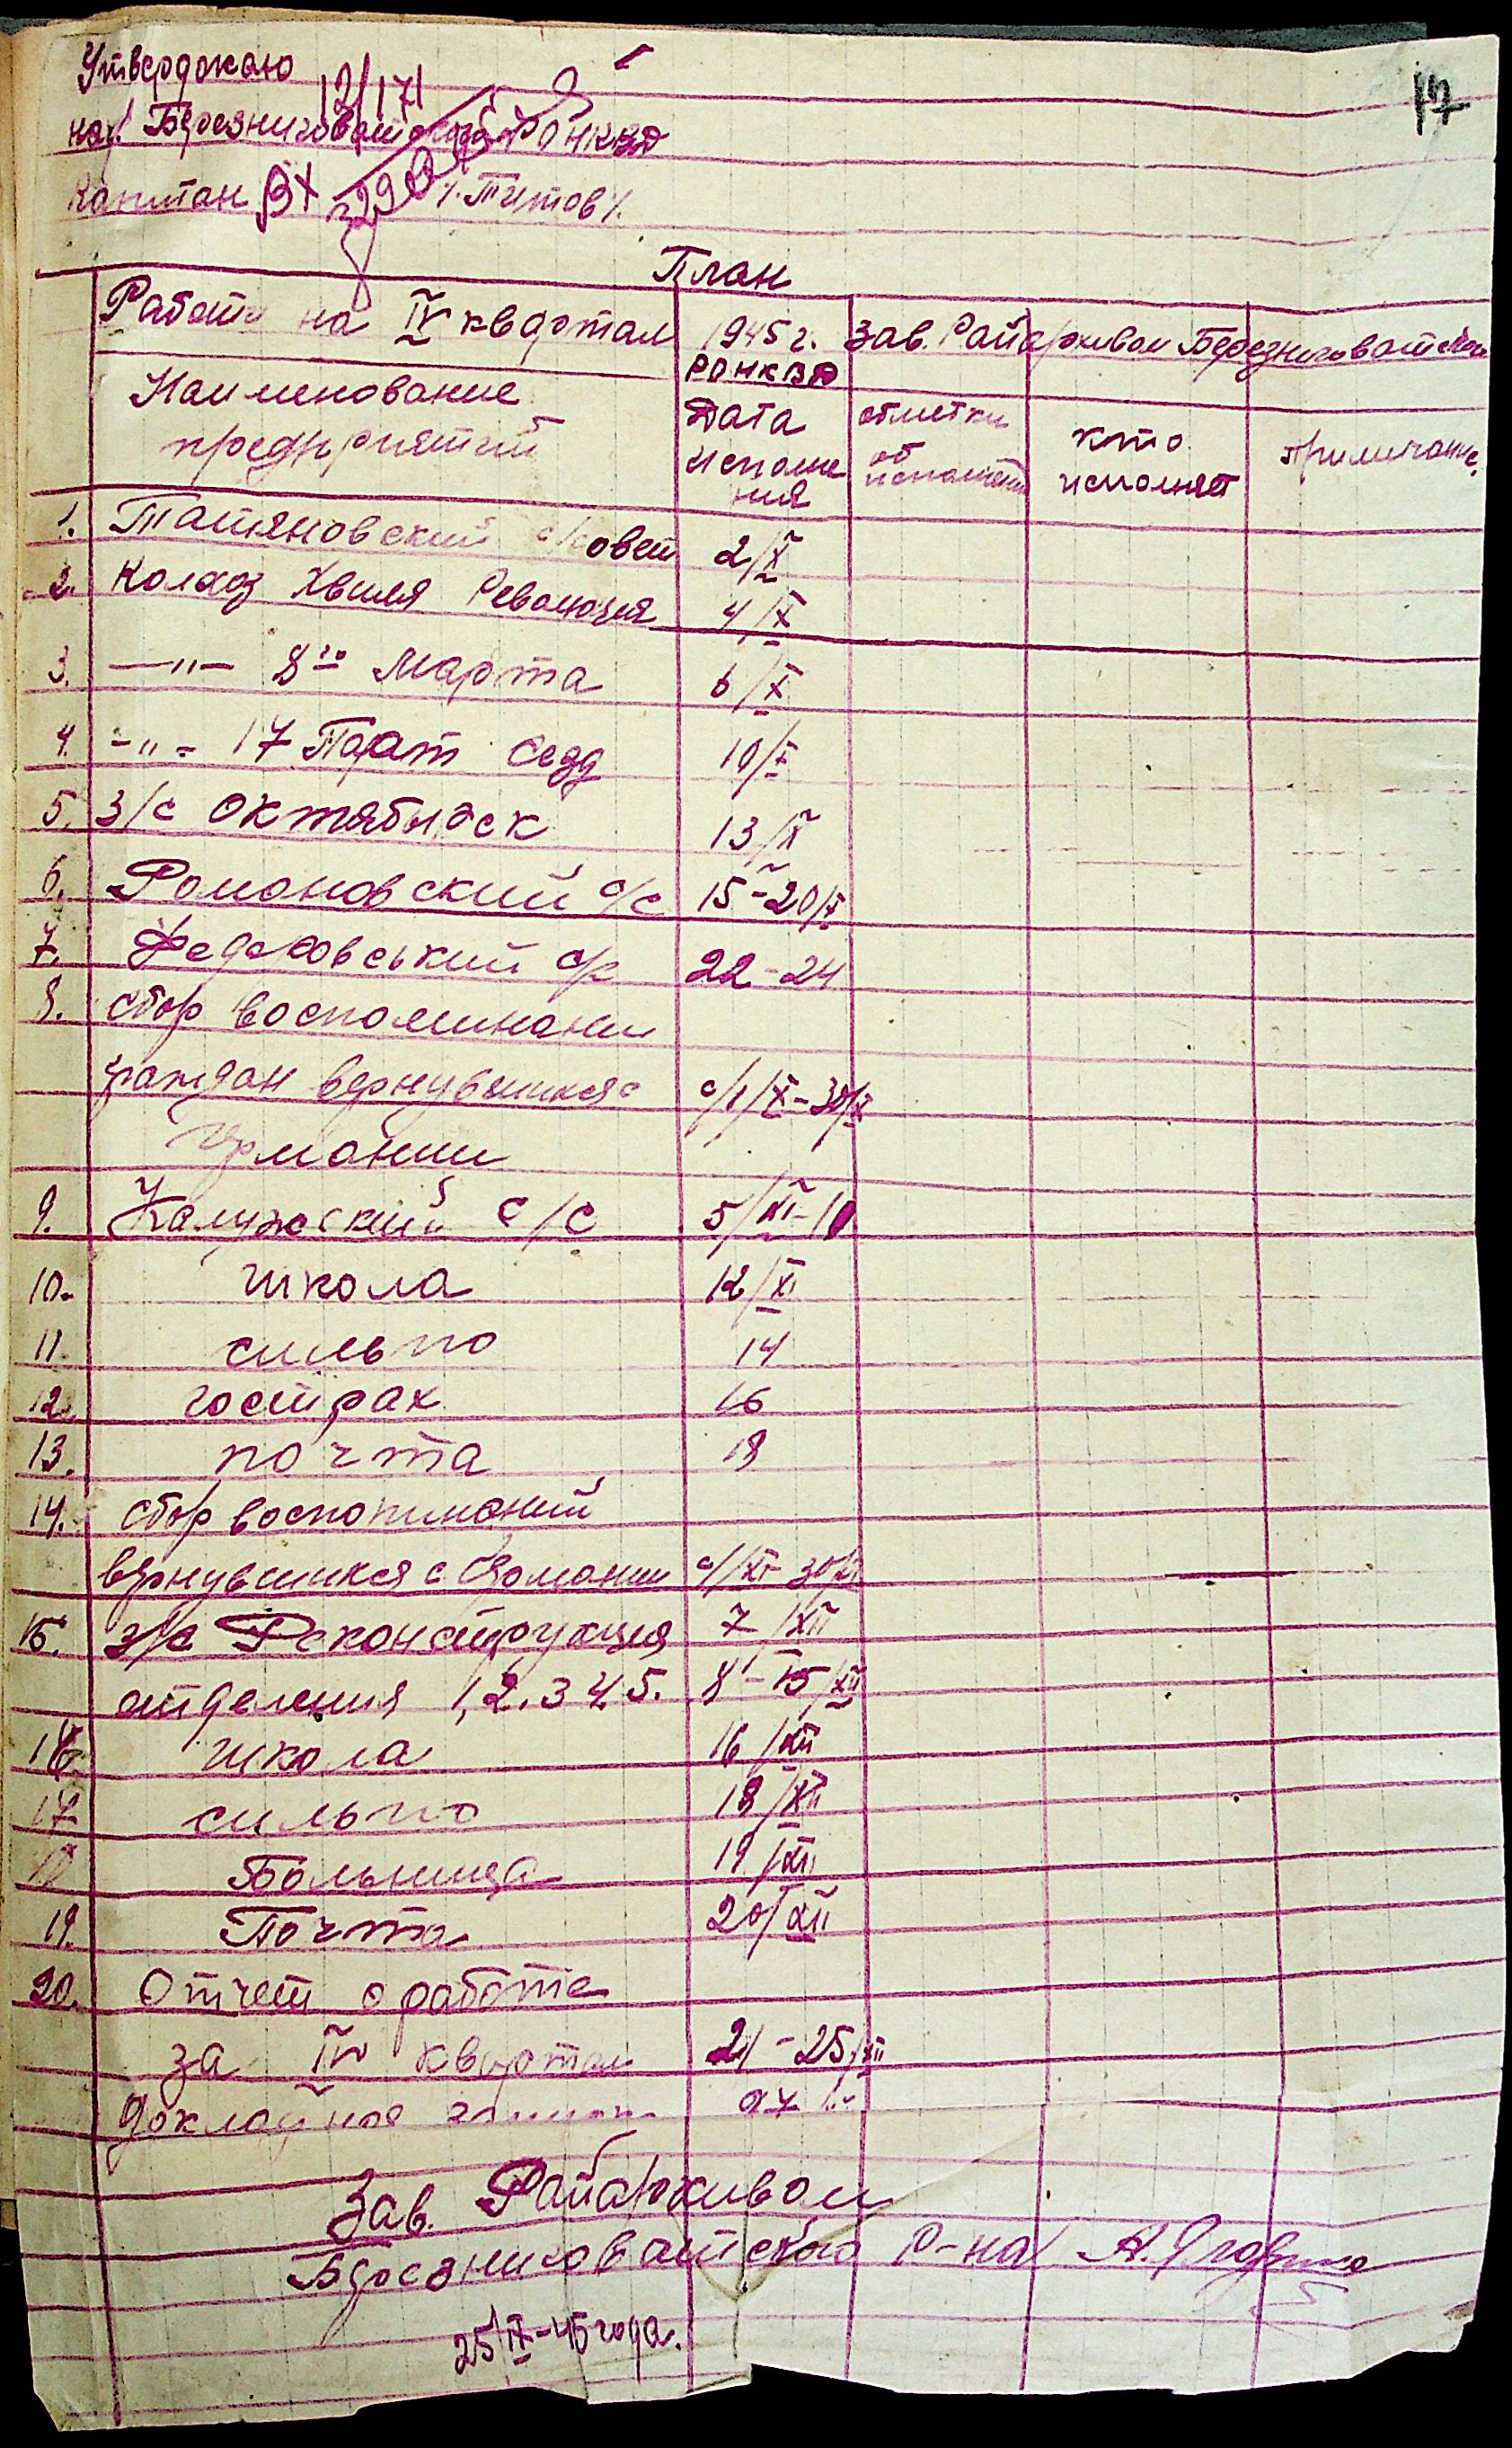 17
Утверждаю
12/171
нач. Березниговатского РОНКВД
капитан /. Титов /.
Вх 229
План
Работы на IV квартал 1945 г. Зав. Райархивом Березниговатского
РОНКВД
Наименование предприятий
Дата исполнения
отметки об исполнении
кто исполняет
примичание.
1. Татяновский с/совет 2/X
2. Колхоз Хвиля Революция 4/X
3. —"— 8го Марта 6/X
4. -"- 17 Парт Сезд 10/X
5. З/с Октябырск 13/X
6. Романовский с/с 15-20/X
7. Федоровський с/с 22-24
8. сбор воспоминании
граждан вернувшихся с с/1/X-30/X
Германии
9. Калужский с/с 5/XI-10
10. школа 12/XI
11. сильпо 14
12. госстрах 16
13. почта 18
14. сбор воспоминаний
вернувшихся с Германии с/1/XI 30/XI
15. з/с Реконструкция 7/XII
отделения 1, 2. 3 4 5. 8-15/XII
16. школа 16/XII
17 сильпо 18/XII
18 Больница 19/XII
19. Почта 20/XII
20. Отчет о работе
за IV квартал 21-25/XII
докладная 27
Зав. Райархивом
Березниговатского р-на
25/IX-45 года.